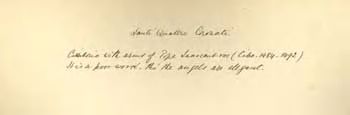 Santi Quattro Coronati
Ciborio with arms of Pope Innocent VIII (Cibo. 1484-1492)
It is a poor work. tho' the angels are elegant.